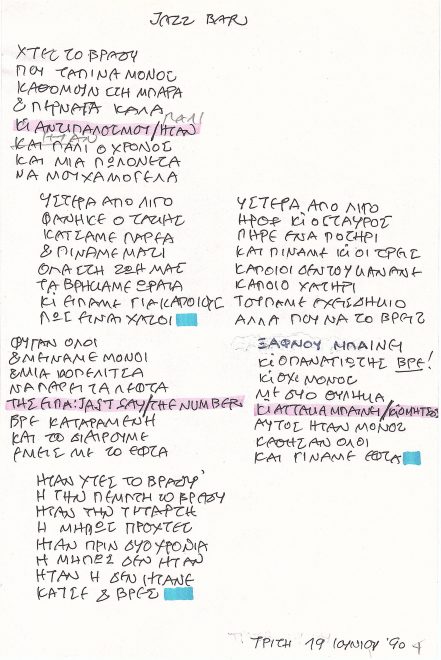 JAZZ BAR
ΧΤΕΣ ΤΟ ΒΡΑΔΥ
ΠΟΥ ΤΑΠΙΝΑ ΜΟΝΟΣ
ΚΑΘΟΜΟΥΝ ΣΤΗ ΜΠΑΡΑ
& ΠΕΡΝΑΓΑ ΚΑΛΑ
ΠΑΛΙ
ΚΙ ΑΝΤΙΠΑΛΟΣ ΜΟΥ/ΗΤΑΝ
ΗΤΑΝ
ΚΑΙ ΠΑΛΙ Ο ΧΡΟΝΟΣ
ΚΑΙ ΜΙΑ ΠΩΛΟΝΕΖΑ
ΝΑ ΜΟΥ ΧΑΜΟΓΕΛΑ
ΥΣΤΕΡΑ ΑΠΟ ΛΙΓΟ
ΦΑΝΗΚΕ Ο ΤΑΚΗΣ
ΚΑΤΣΑΜΕ ΠΑΡΕΑ
& ΠΙΝΑΜΕ ΜΑΖΙ
ΟΛΑ ΣΤΗ ΖΩΗ ΜΑΣ
ΤΑ ΒΡΗΚΑΜΕ ΣΚΑΤΑ
ΚΙ ΕΙΠΑΜΕ ΓΙΑ ΚΑΠΟΙΟΥΣ
ΠΩΣ ΕΙΝΑΙ ΧΑΖΟΙ
ΥΣΤΕΡΑ ΑΠΟ ΛΙΓΟ
ΗΡΘΕ ΚΙ Ο ΣΤΑΥΡΟΣ
ΠΗΡΕ ΕΝΑ ΠΟΤΗΡΙ
ΚΑΙ ΠΙΝΑΜΕ ΚΙ ΟΙ ΤΡΕΙΣ
ΚΑΠΟΙΟΙ ΔΕΝ ΤΟΥ ΚΑΝΑΝΕ
ΚΑΠΟΙΟ ΧΑΤΗΡΙ
ΤΟΥ ΠΑΜΕ ΕΧΕΙΣ ΔΙΚΙΟ
ΑΛΛΑ ΠΟΥ ΝΑ ΤΟ ΒΡΕΙΣ
ΦΥΓΑΝ ΟΛΟΙ
& ΜΕΙΝΑΜΕ ΜΟΝΟΙ
& ΜΙΑ ΚΟΠΕΛΙΤΣΑ
ΝΑ ΠΑΡΕΙ ΤΑ ΛΕΦΤΑ
ΤΗΣ ΕΙΠΑ: JAST SAY/THE NUMBER
ΒΡΕ ΚΑΤΑΡΑΜΕΝΗ
ΚΑΙ ΤΟ ΔΙΑΙΡΟΥΜΕ
ΕΜΕΙΣ ΜΕ ΤΟ ΕΦΤΑ
ΞΑΦΝΟΥ ΜΠΑΙΝΕΙ
ΚΙ Ο ΠΑΝΑΓΙΩΤΗΣ ΒΡΕ!
ΚΙ ΟΧΙ ΜΟΝΟΣ
ΜΕ ΔΥΟ ΘΥΛΗΚΑ
ΚΙ ΑΤΤΑΚΑ ΜΠΑΙΝΕΙ/ΚΙ Ο ΜΗΤΣΟΣ
ΑΥΤΟΣ ΗΤΑΝ ΜΟΝΟΣ
ΚΑΘΗΣΑΝ ΟΛΟΙ
ΚΑΙ ΓΙΝΑΜΕ ΕΦΤΑ
ΗΤΑΝ ΧΤΕΣ ΤΟ ΒΡΑΔΥ
Η ΤΗΝ ΠΕΜΠΤΗ ΤΟ ΒΡΑΔΥ
ΗΤΑΝ ΤΗΝ ΤΕΤΑΡΤΗ
Η ΜΗΠΩΣ ΠΡΟΧΤΕΣ
ΗΤΑΝ ΠΡΙΝ ΔΥΟ ΧΡΟΝΙΑ
Η ΜΗΠΩΣ ΔΕΝ ΗΤΑΝ
ΗΤΑΝ Η ΔΕΝ ΗΤΑΝΕ
ΚΑΤΣΕ & ΒΡΕΣ
ΤΡΙΤΗ 19 ΙΟΥΝΙΟΥ '90